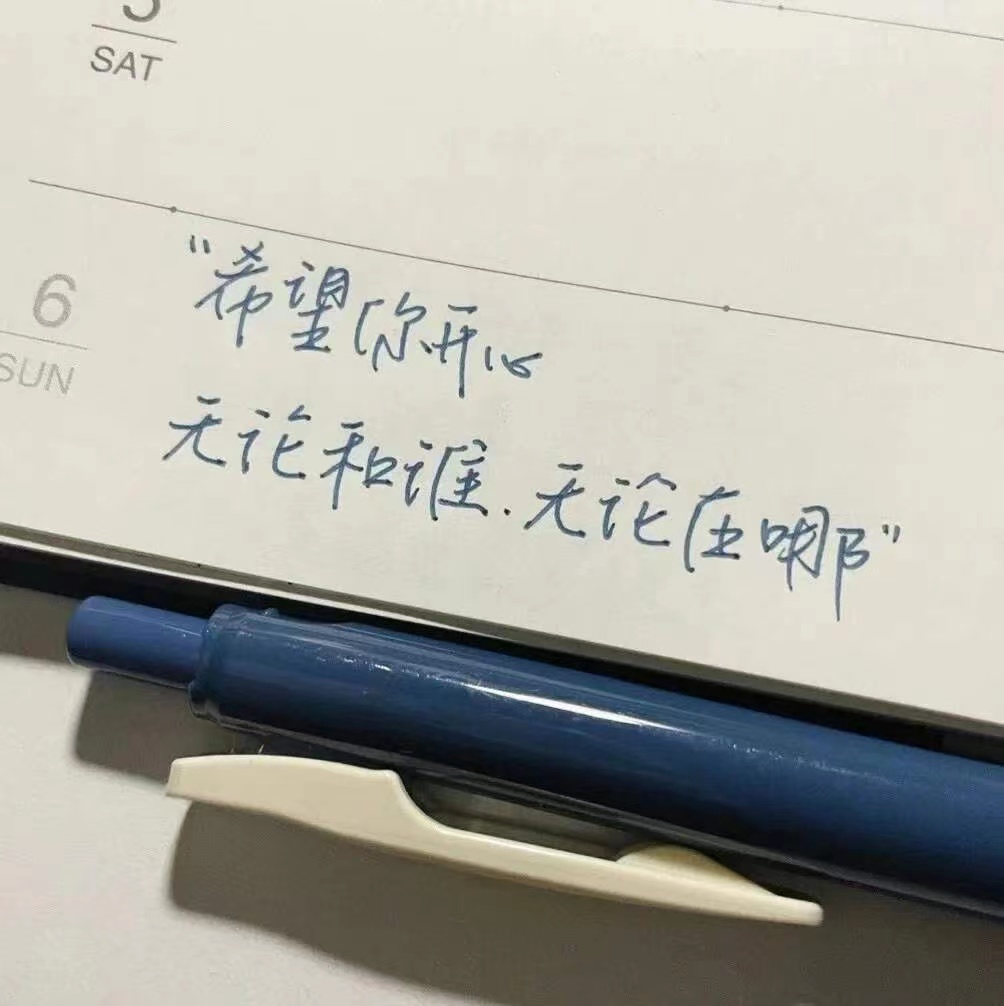 5
SAT
6
SUN
“希望你开心
无论和谁.无论在哪”